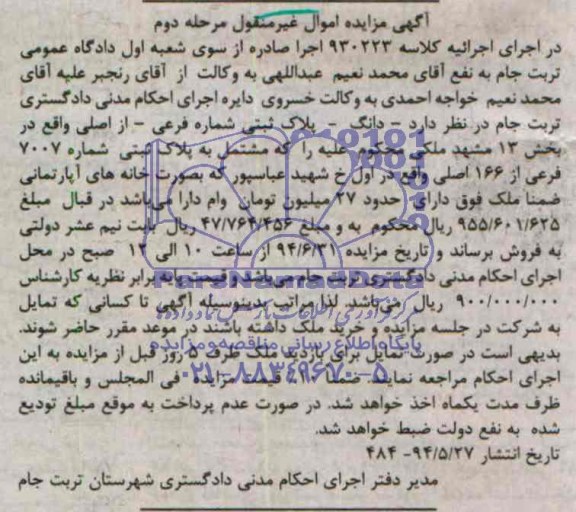 آگهی مزایده اموال غیرمنقول مرحله دوم
در اجرای اجرائیه کلاسه ۹۳۰۲۲۳ اجرا صادره از سوی شعبه اول دادگاه عمومی
تربت جام به نفع آقای محمد نعیم عبداللهی به وکالت از آقای رنجبر علیه آقای
محمد نعیم خواجه احمدی به وکالت خسروی دایره اجرای احکام مدنی دادگستری
تربت جام در نظر دارد - دانگ - پلاک ثبتی شماره فرعی - از اصلی واقع در
بخش ۱۳ مشهد ملکی محکوم علیه را که مشتمل به پلاک ثبتی شماره ۷۰۰۷
فرعی از ۱۶۶ اصلی واقع در اول خ شهید عباسپور که بصورت خانه های آپارتمانی
ضمنا ملک فوق دارای حدود ۲۷ میلیون تومان وام دارا می‌باشد در قبال مبلغ
۹۵۵/۶۰۱/۶۲۵ ریال محکوم به و مبلغ ۴۷/۷۶۴/۴۵۶ ریال بابت نیم عشر دولتی
به فروش برساند و تاریخ مزایده ۹۴/۶/۳۱ از ساعت ۱۰ الی ۱۲ صبح در محل
اجرای احکام مدنی دادگستری تربت جام می‌باشد و قیمت پایه برابر نظریه کارشناس
۹۰۰/۰۰۰/۰۰۰ ریال می‌باشد. لذا مراتب بدینوسیله آگهی تا کسانی که تمایل
به شرکت در جلسه مزایده و خرید ملک داشته باشند در موعد مقرر حاضر شوند.
بدیهی است در صورت تمایل برای بازدید ملک ظرف ۵ روز قبل از مزایده به این
اجرای احکام مراجعه نمایند. ضمنا ۱۰٪ قیمت مزایده فی المجلس و باقیمانده
ظرف مدت یکماه اخذ خواهد شد. در صورت عدم پرداخت به موقع مبلغ تودیع
شده به نفع دولت ضبط خواهد شد.
تاریخ انتشار ۹۴/۵/۲۷- ۴۸۴
مدیر دفتر اجرای احکام مدنی دادگستری شهرستان تربت جام
ParsNamadData
پایگاه اطلاع رسانی مناقصه و مزایده
۰۲۱-۸۸۳۴۹۶۷۰-۵